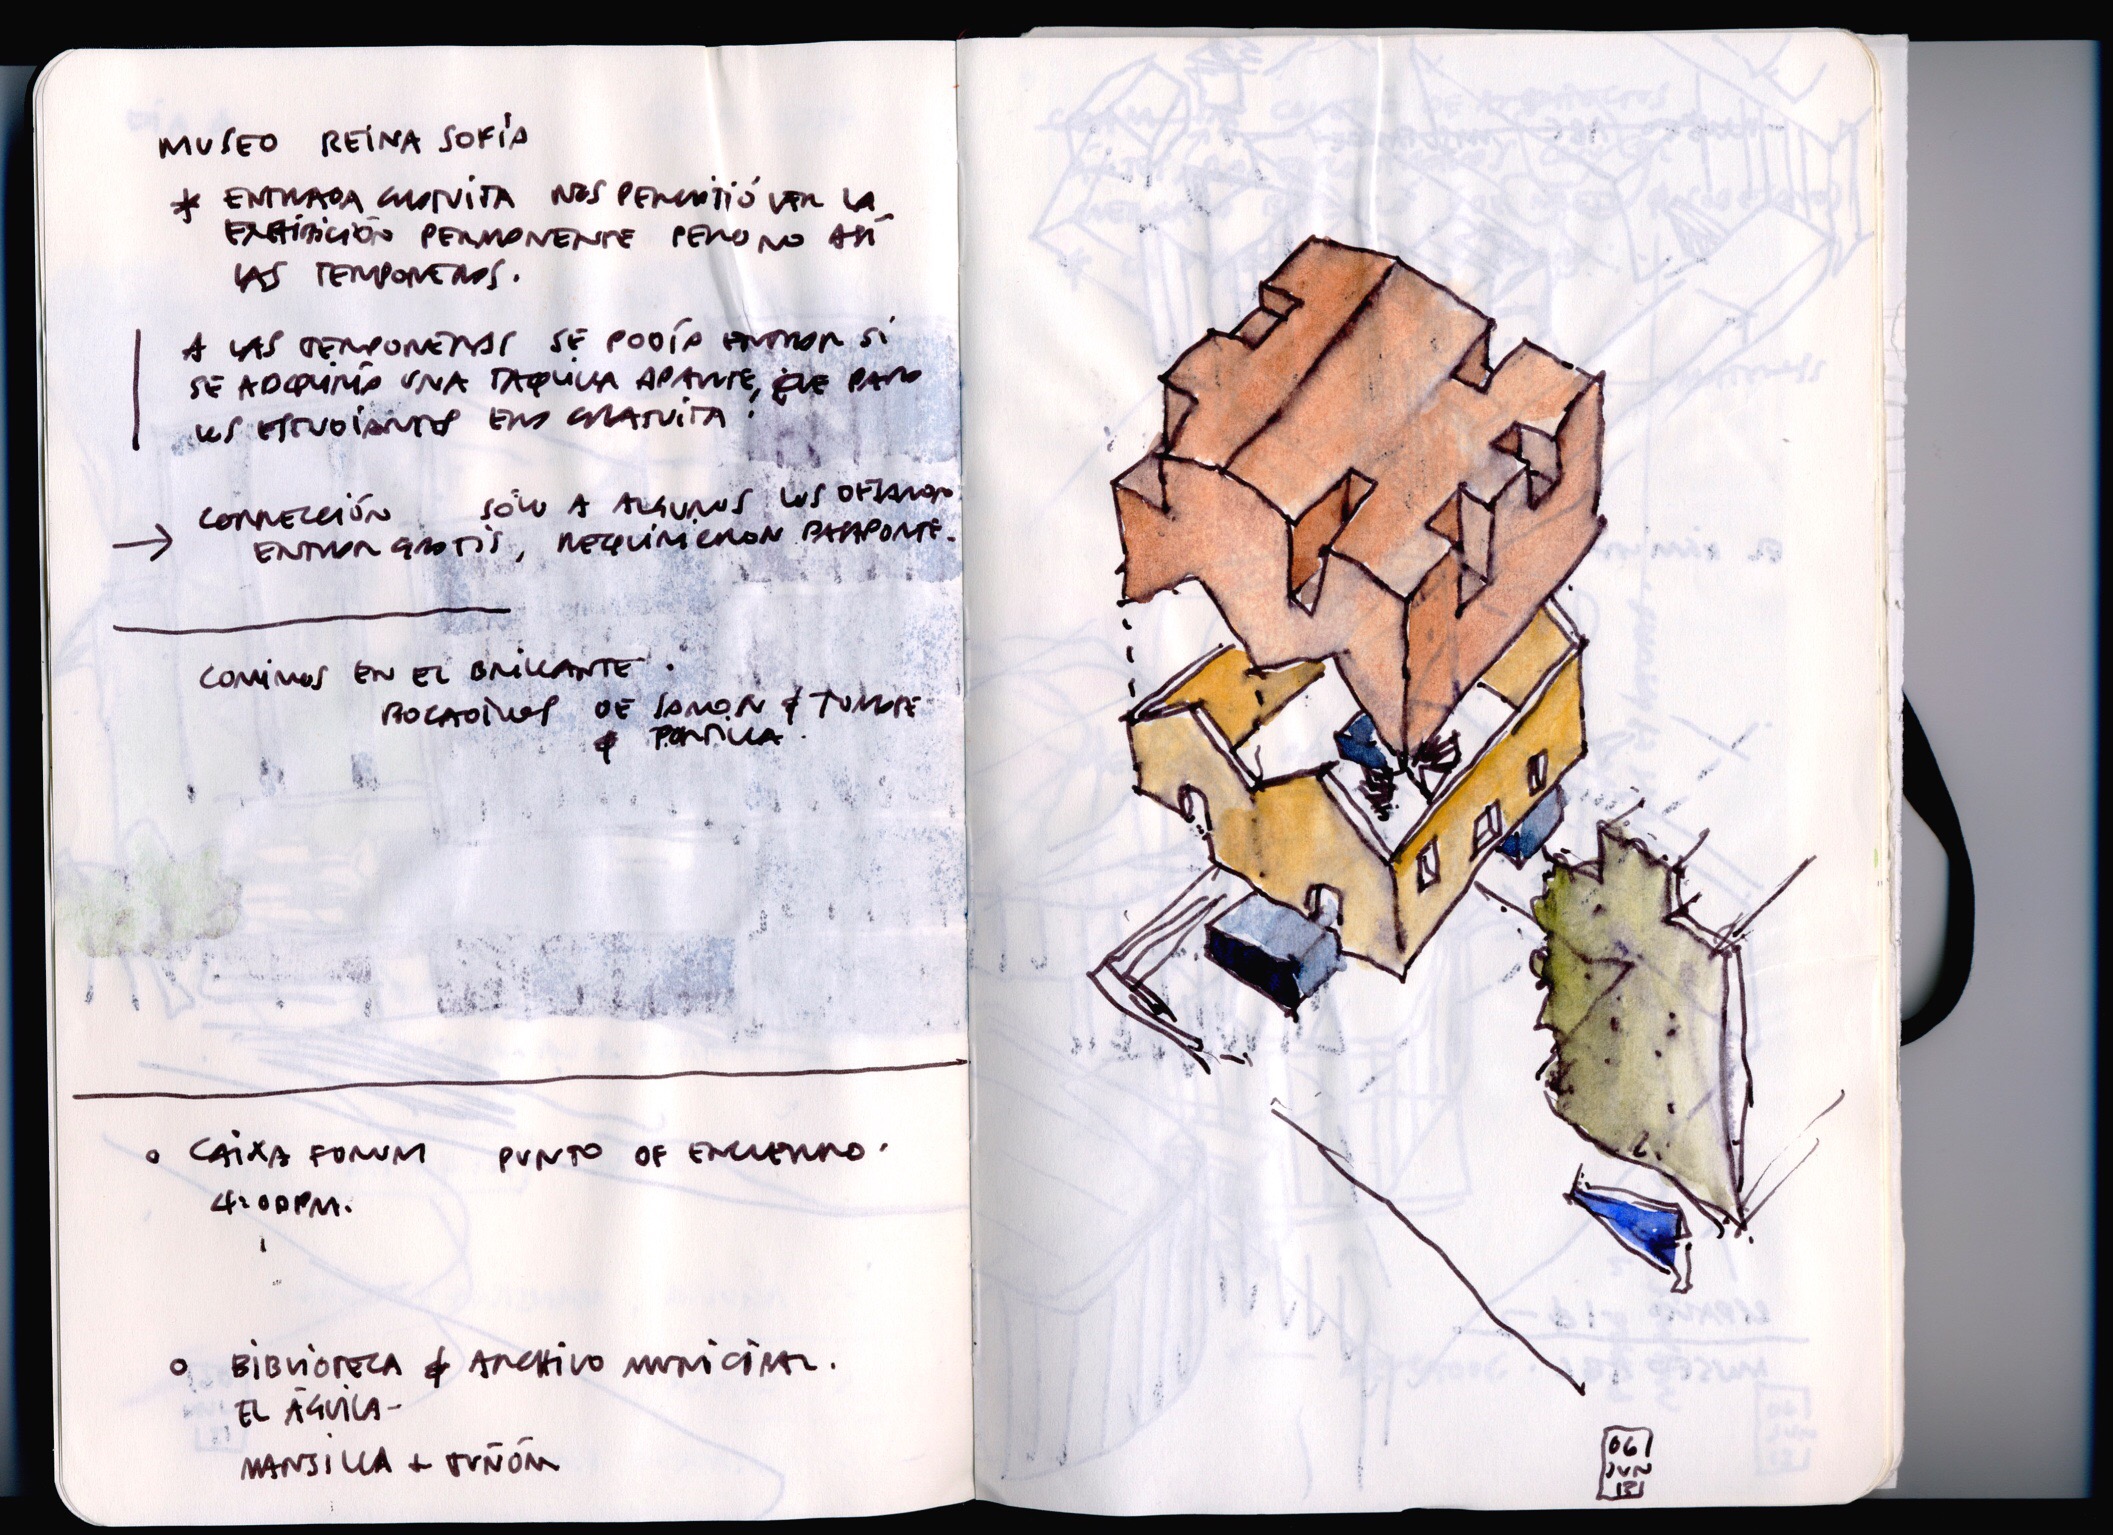 MUSEO REINA SOFÍA
* ENTRADA GRATUITA NOS PERMITIÓ VER LA
EXHIBICIÓN PERMANENTE PERO NO ASÍ
LAS TEMPORERAS.
A LAS TEMPORERAS SE PODÍA ENTRAR SI
SE ADQUIRÍA UNA TAQUILLA APARTE, QUE PARA
LOS ESTUDIANTES ERA GRATUITA.
→ CORRECCIÓN SÓLO A ALGUNOS LOS DEJARON
ENTRAR GRATIS, REQUIRIERON PASAPORTE.
COMIMOS EN EL BRILLANTE.
BOCADILLOS DE JAMON &
& TORTILLA.
o CAIXA FORUM PUNTO DE ENCUENTRO.
4:00PM.
o BIBLIOTECA & ARCHIVO MUNICIPAL.
EL ÁGUILA-
MANSILLA + TUÑÓN
06
JUN
13